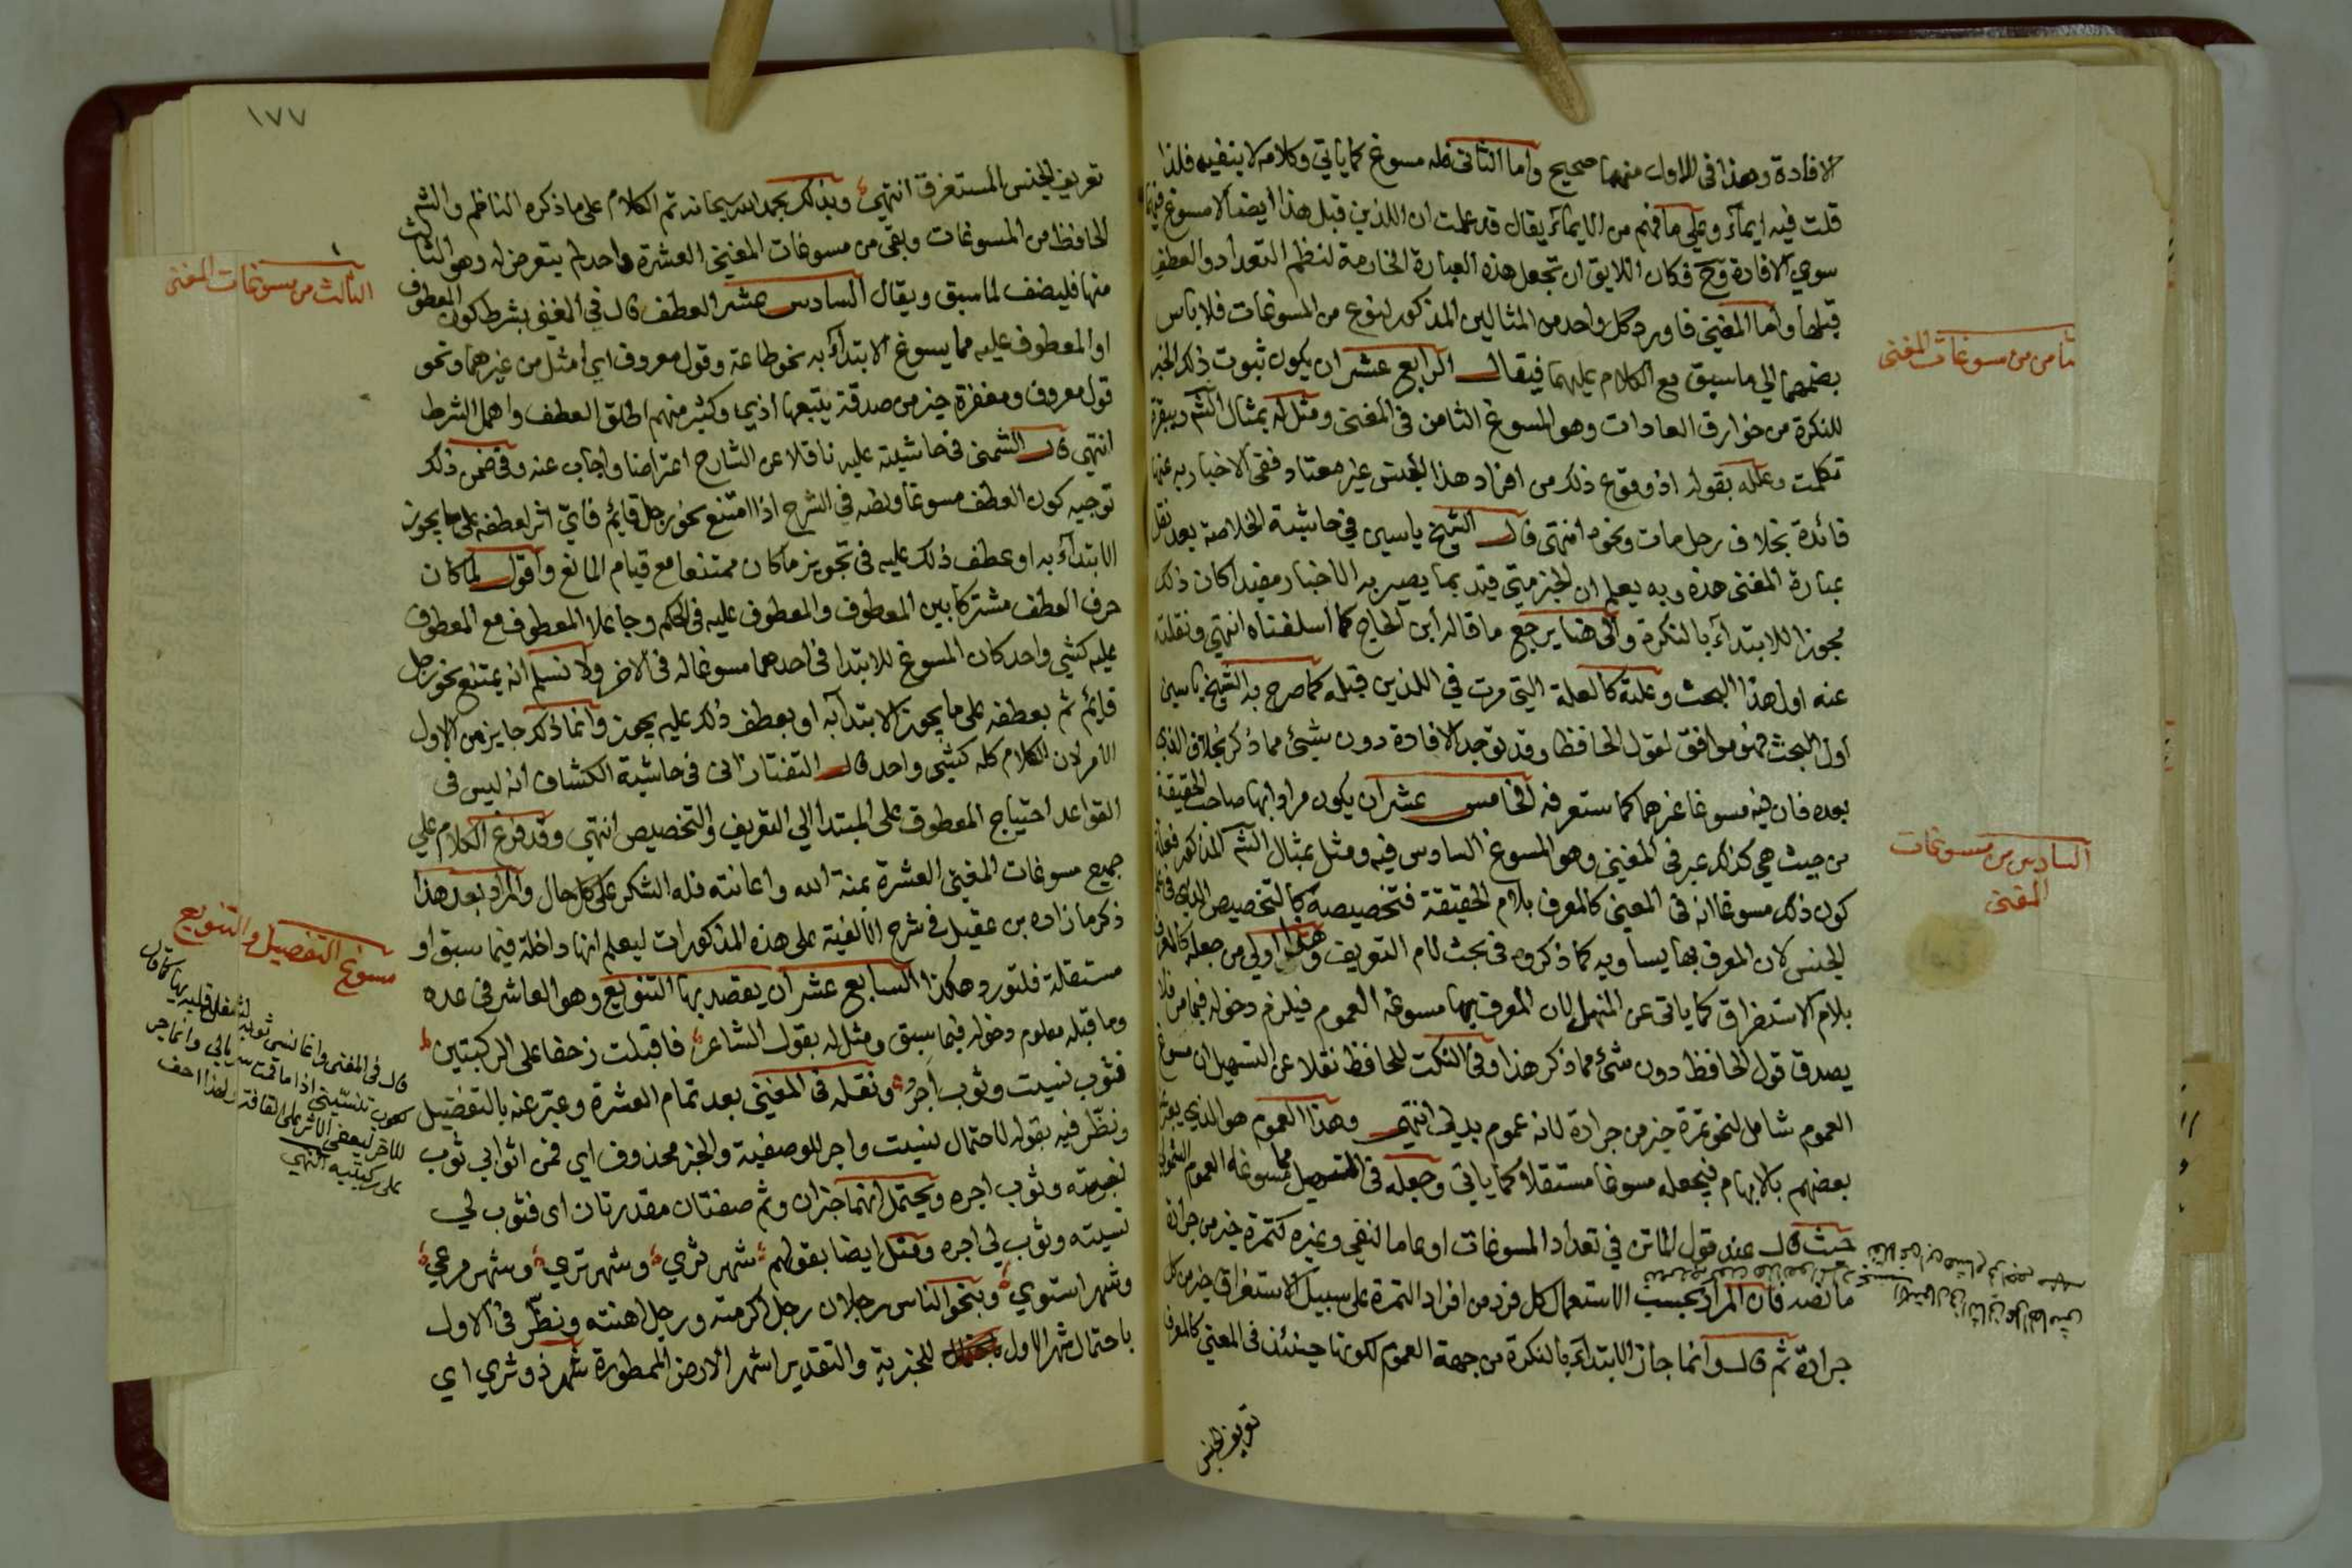 الافادة وهذا في الاول منهما صحيح واما الثاني فله مسوغ كما ياتي وكلامه لا ينفيه فلذا
قلت فيه ايماء وعلى ما فهم من الايماء يقال قد علمت ان اللذين قبل هذا ايضا لا مسوغ فيهما
سوى الافادة وح فكان اللايق ان تجعل هذه العبارة الخادمة لنظم التعداد والعطف
قبلها واما المغني فاورد كل واحد من المثالين المذكور لنوع من المسوغات فلا باس
بضمهما الى ما سبق مع الكلام عليهما فيقال الرابع عشر ان يكون ثبوت ذلك الخبر
للنكرة من خوارق العادات وهو المسوغ الثامن في المغني ومثل له بمثال الشم وببقرة
تكلمت وعلله بقوله اذ وقوع ذلك من افراد هذا الجنس غير معتاد ففي الاخبار به عنها
فائدة بخلاف رجل مات ونحوه انتهى قال الشيخ ياسين في حاشية الخلاصة بعد نقل
عبارة المغني هذه وبه يعلم ان الخبر متى قيد بما يصير به الاخبار مفيدا كان ذلك
مجوزا للابتداء بالنكرة والى هنا يرجع ما قاله ابن الحاج كما اسلفناه انتهى ونقلته
عنه اول هذا البحث وعلته كالعلة التي مرت في اللذين قبله كما صرح به الشيخ ياسين
اول البحث فهو موافق لقول الحافظ وقد توجد الافادة دون شيئ مما ذكر بخلاف الذي
بعده فان فيه مسوغا غيرهما كما ستعرفه الخامس عشر ان يكون مرادا بها صاحب الحقيقة
من حيث هي كذلك عبر في المغني وهو المسوغ السادس فيه ومثل بمثال الشم المذكور فعلة
كون ذلك مسوغا انه في المعنى كالمعرف بلام الحقيقة فتخصيصه كالتخصيص الذي في علم
الجنس لان المعرف بها يساويه كما ذكروه في بحث لام التعريف وهذا اولى من جعله كالمعرف
بلام الاستغراق كما ياتي عن المنهل لان المعرف بها مسوغه العموم فيلزم دخوله فيما مر فلا
يصدق قول الحافظ دون شيئ مما ذكر هذا وفي النكت للحافظ نقلا عن التسهيل ان مسوغ
العموم شامل لنحو تمرة خير من جرادة لانه عموم بدلي انتهى وهذا العموم هو الذي يعبر عنه
بعضهم بالابهام فيجعله مسوغا مستقلا كما ياتي وجعله في المنهل مما مسوغه العموم الشمولي
حيث قال عند قول الماتن في تعداد المسوغات او عاما لنفي وغيره كتمرة خير من جرادة
ما نصه فان المراد بحسب الاستعمال كل فرد من افراد التمرة على سبيل الاستغراق خير من كل
جرادة ثم قال وانما جاز الابتداء بالنكرة من جهة العموم لكونها حينئذ في المعنى كالمعرف
تعريف الجنس
ثامن من مسوغات المغني
السادس من مسوغات
المغني
١٧٧
تعريف الجنس المستغرق انتهى وبذلك بحمد الله سبحانه تم الكلام على ما ذكره الناظم والشم
الحافظ من المسوغات وبقي من مسوغات المغني العشرة واحد لم يتعرض له وهو الثالث
منها فليضف لما سبق ويقال السادس عشر العطف قال في المغني بشرط كون المعطوف
او المعطوف عليه مما يسوغ الابتداء به نحو طاعة وقول معروف اي امثل من غيرهما ونحو
قول معروف ومغفرة خير من صدقة يتبعها اذى وكثير منهم اطلق العطف واهمل الشرط
انتهى قال الشمني في حاشيته عليه ناقلا عن الشارح اعتراضا واجاب عنه وفي ضمن ذلك
توجيه كون العطف مسوغا ونصه في الشرح اذا امتنع نحو رجل قائم فاي اثر لعطفه على ما يجوز
الابتداء به او عطف ذلك عليه في تجويز ما كان ممتنعا مع قيام المانع واقول لما كان
حرف العطف مشتركا بين المعطوف والمعطوف عليه في الحكم وجاعلا المعطوف مع المعطوف
عليه كشي واحد كان المسوغ للابتدا في احدهما مسوغا له في الاخر ولا نسلم انه يمتنع نحو رجل
قائم ثم بعطفه على ما يجوز الابتداء به او بعطف ذلك عليه يجوز وانما ذلك جايز من الاول
الامر لان الكلام كله كشيئ واحد قال التفتازاني في حاشية الكشاف انه ليس في
القواعد احتياج المعطوف على المبتدا الى التعريف والتخصيص انتهى وقد فرغ الكلام على
جميع مسوغات المغني العشرة بمنة الله واعانته فله الشكر على كل حال والمراد بعد هذا
ذكر ما زاده بن عقيل في شرح الالفية على هذه المذكورات ليعلم انها داخلة فيما سبق او
مستقلة فلتورد هكذا السابع عشر ان يقصد بها التنويع وهو العاشر في عده
وما قبله معلوم دخوله فيما سبق ومثل له بقول الشاعر فاقبلت زحفا على الركبتين
فثوب نسيت وثوب اجر ونقله في المغني بعد تمام العشرة وعبر عنه بالتفضيل
ونظر فيه بقوله لاحتمال نسيت واجر للوصفية والخبر محذوف اي فمن اثوابي ثوب
نسيته وثوب اجره ويحتمل انهما خبران وثم صفتان مقدرتان اى فثوب لي
نسيته وثوب لي اجره ومثل ايضا بقولهم شهر ثرى وشهر ترى وشهر مرعى
وشهر استوى وبنحو الناس رجلان رجل اكرمته ورجل اهنته ونظر في الاول
باحتمال شهر الاول للخبرية والتقدير اشهر الارض الممطورة شهر ذو ثرى اي
الثالث من مسوغات المغني
مسوغ التفصيل والتنويع
قال في المغني وانما نسي ثوبه لشغل قلبه بها كما قال
لعوب تنسيني اذا ما قمت سربالي وانما جر
الاخر ليعفي الاثر على القافة ولهذا زحف
على ركبتيه انتهى